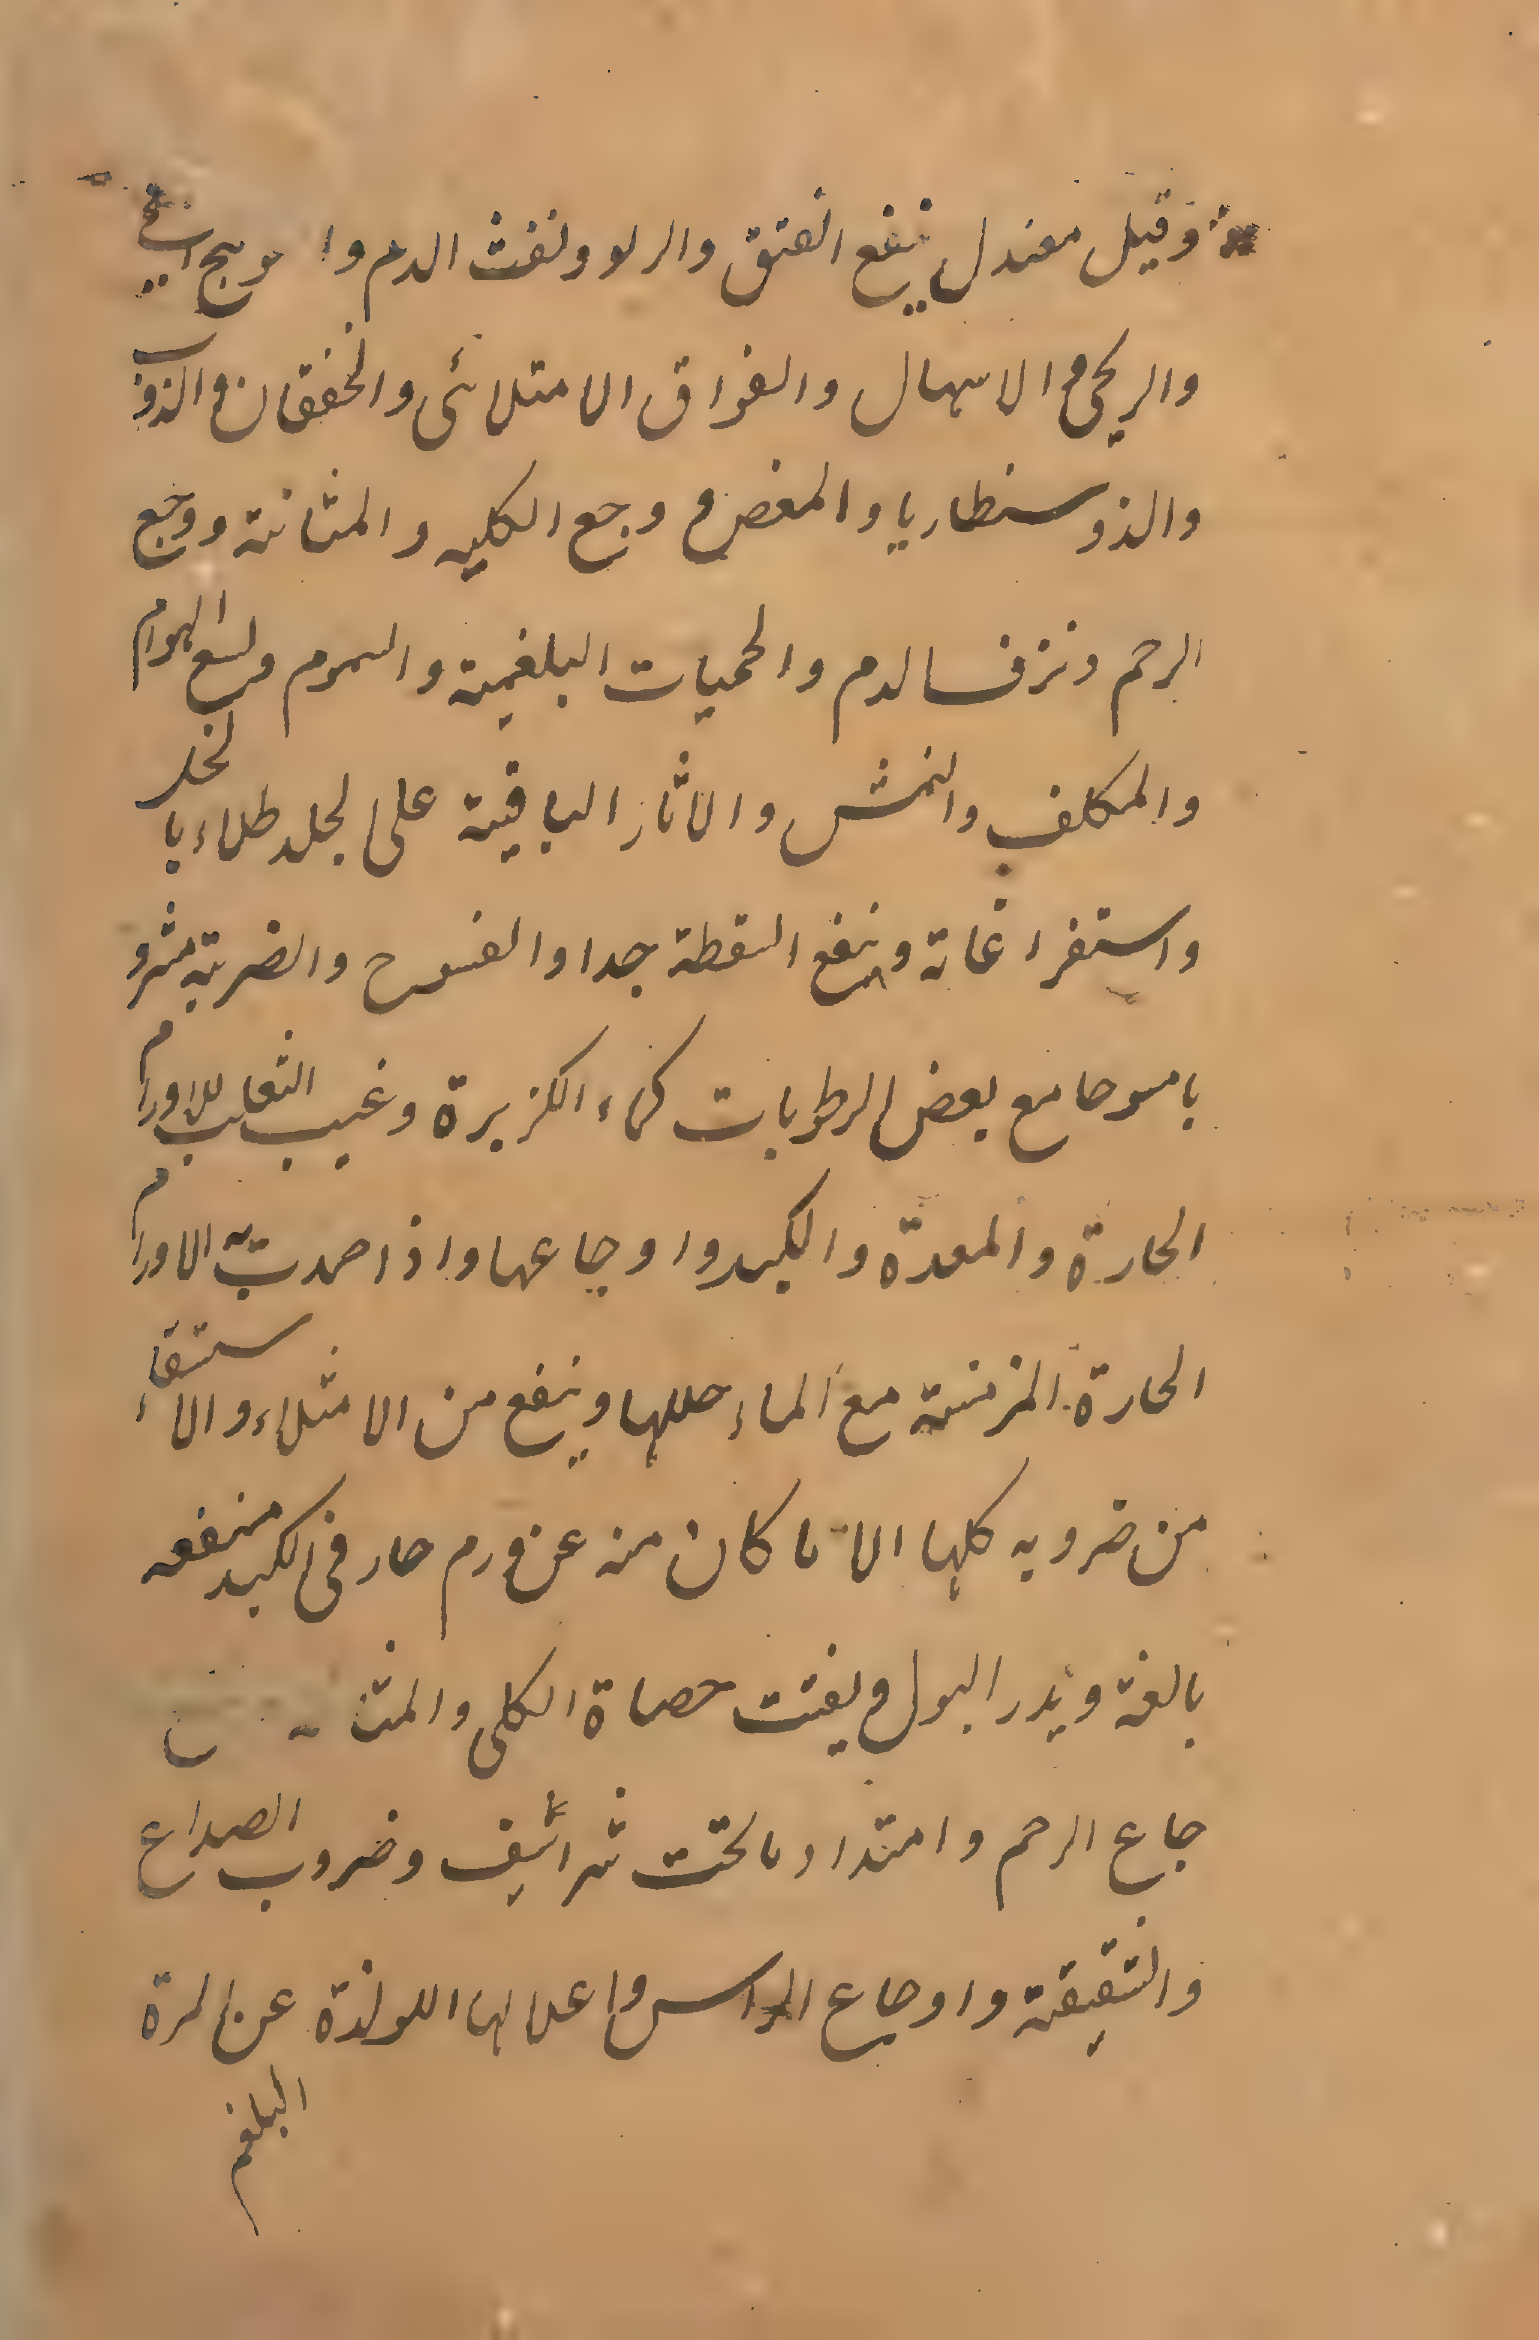 وقيل معتدل ينفع الفتق والربو ونفث الدم وا
والريحي والاسهال والفواق الامتلائي والخفقان والذرب
والذوسنطاريا والمغص و وجع الكليه والمثانة ووجع
الرحم ونزف الدم والحميات البلغمية والسموم ولسع الهوام
والكلف والنمش والاثار الباقية على الجلد طلاء بالخل
واستفراغاته وينفع السقطة جدا والفسوخ والضربة مشرو
با مسوحا مع بعض الرطوبات كماء الكزبرة وعنب الثعلب للاورام
الحارة والمعدة والكبد واوجاعها واذا ضمدت به الاورام
الحارة المزمنة مع الماء حللها وينفع من الامتلاء والاستقاء
من ضروبه كلها الا ما كان منه عن ورم حار في الكبد منفعه
بالغة ويدر البول ويفتت حصاة الكلى والمثا
جاع الرحم وامتداد ما تحت شراسيف وضروب الصداع
والشقيقة واوجاع الراس واعلالها المولدة عن المرة
البلغم